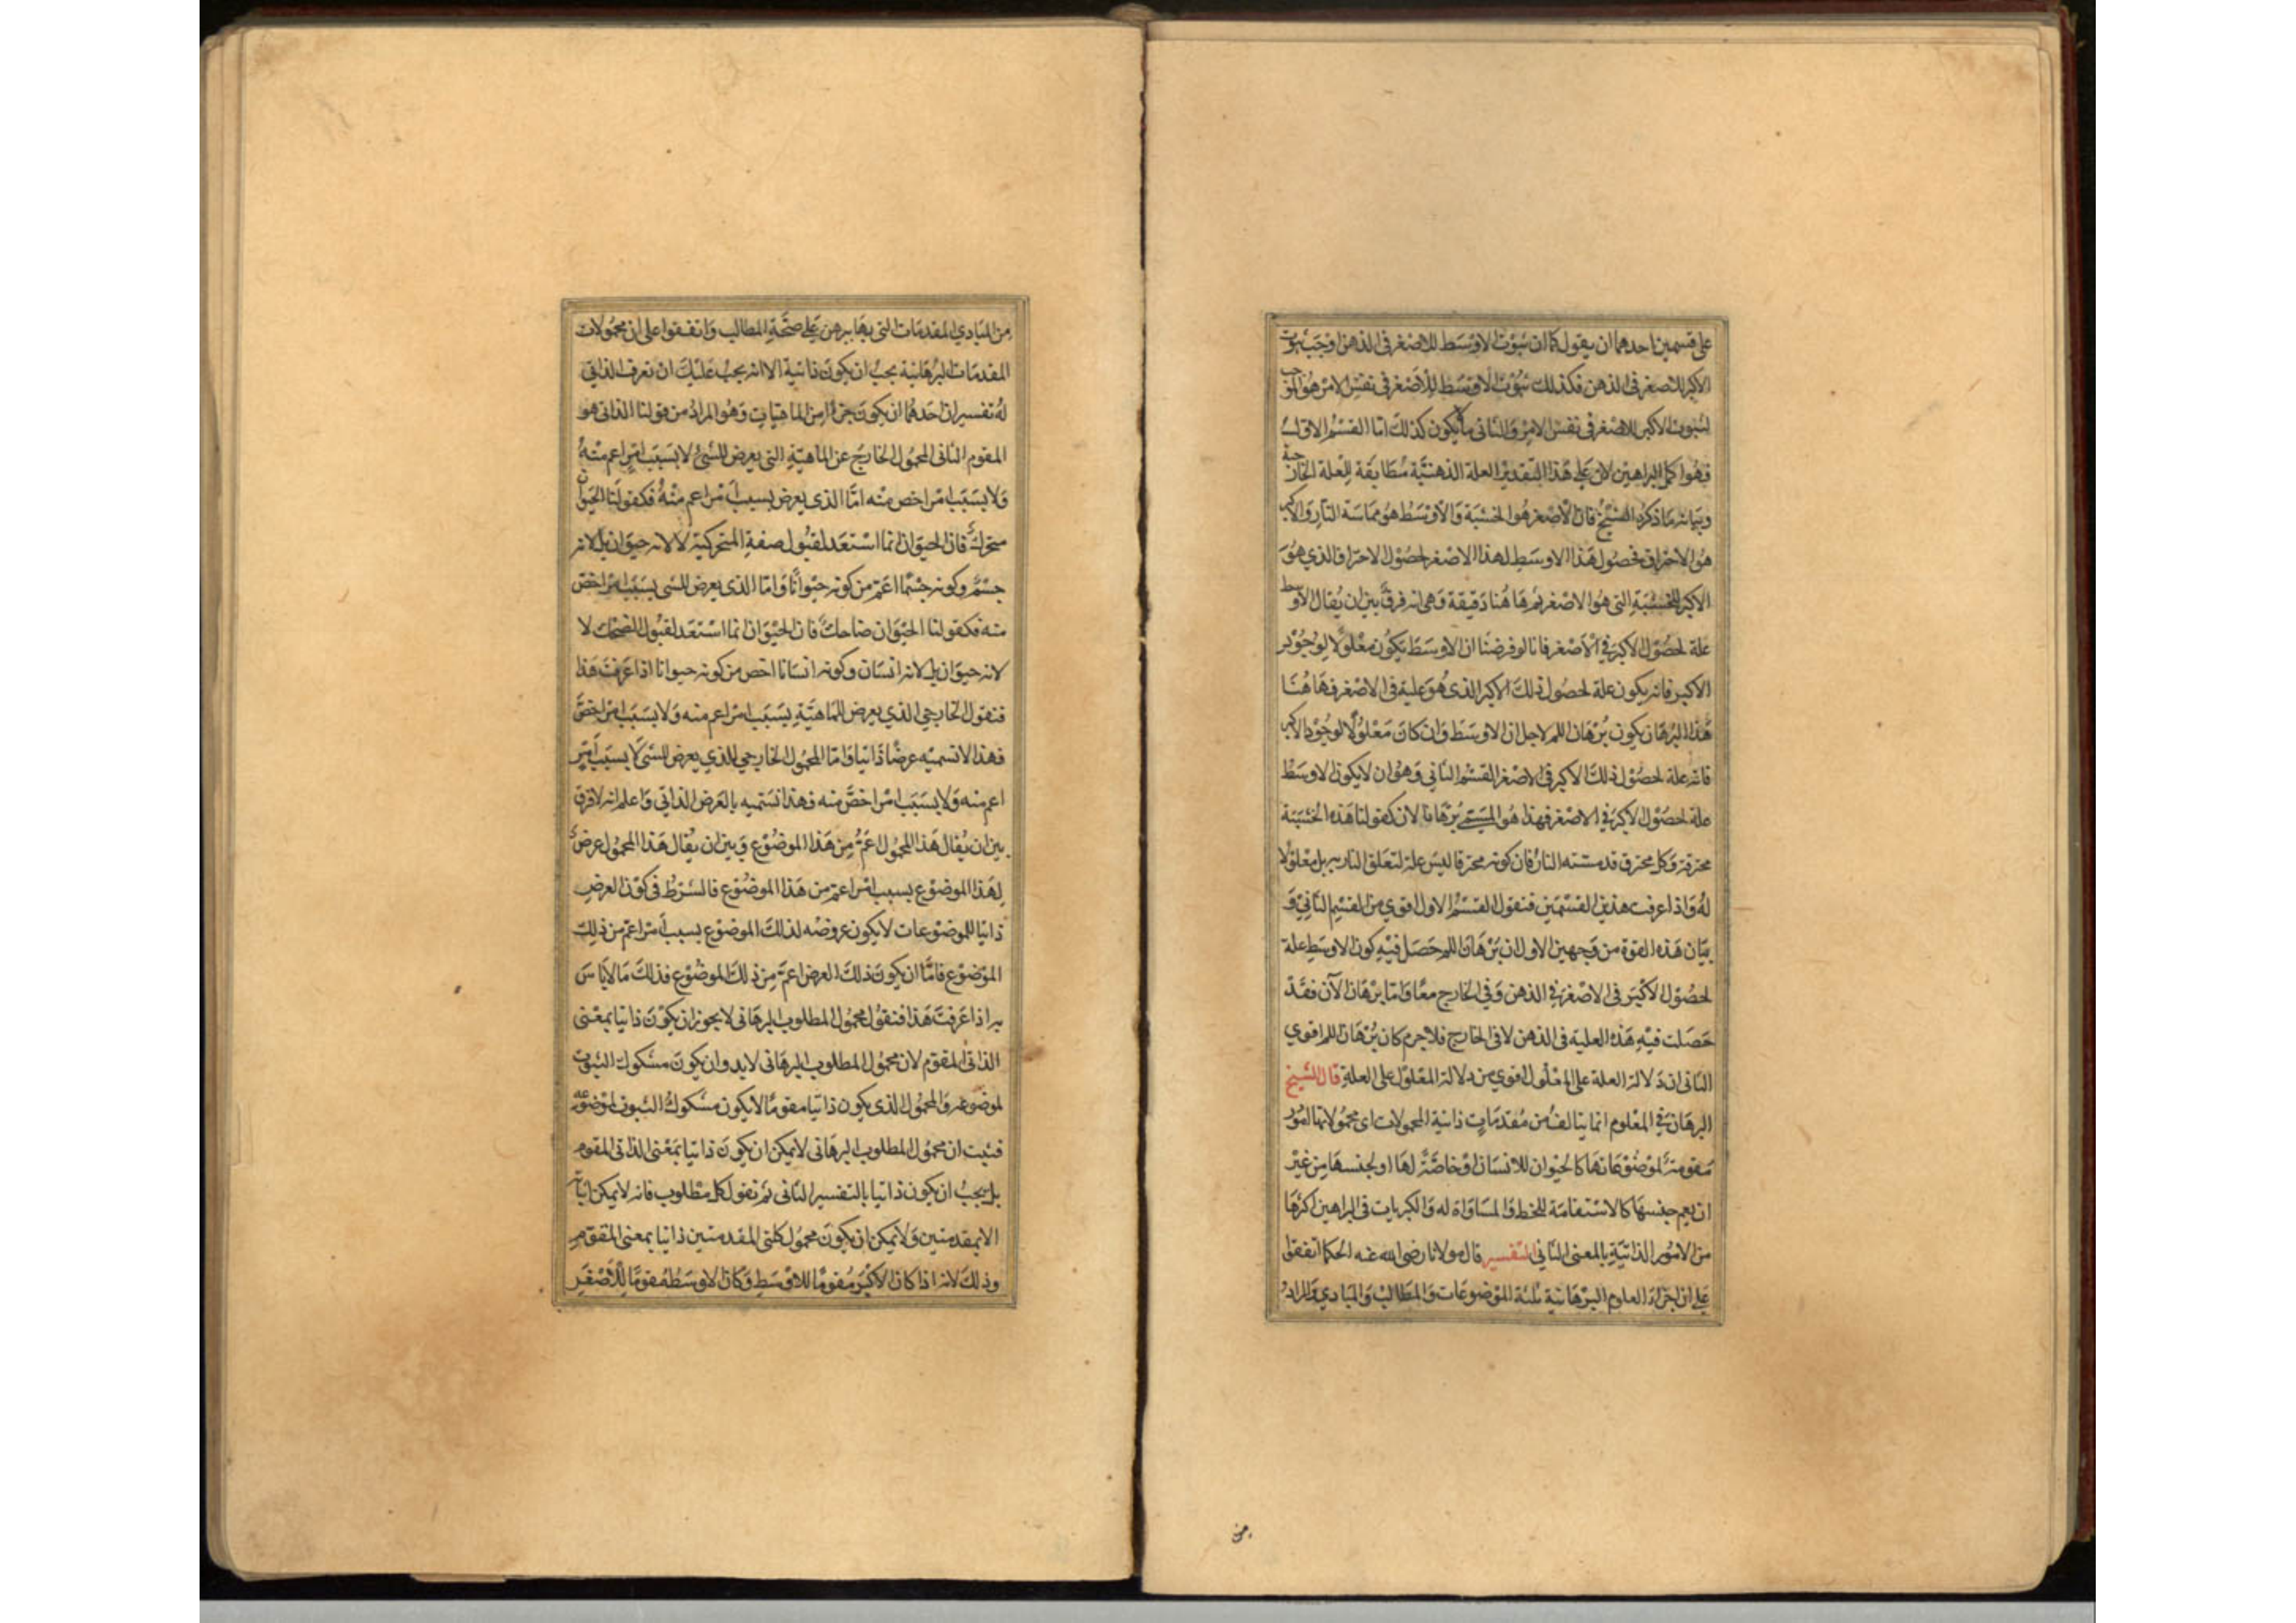 على قسمين احدهما ان يقول كما ان ثبوت الاوسط للاصغر فى الذهن اوجب ثبوت
الاكبر للاصغر فى الذهن فكذلك ثبوت الاوسط للاصغر فى نفس الامر هو الموجب
لثبوت الاكبر للاصغر فى نفس الامر والثانى ما لا يكون كذلك اما القسم الاول
فهو اكمل البراهين لان على هذا التقدير العلة الذهنية مطابقة للعلة الخارجية
وبيانه ما ذكره الشيخ قال الاصغر هو الخشبة والاوسط هو مماسة النار والاكبر
هو الاحراق فحصول هذا الاوسط لهذا الاصغر لحصول الاحتراق الذي هو
الاكبر للخشبة التى هو الاصغر ثم هاهنا دقيقة وهى انه فرق بين ان يقال الاوسط
علة لحصول الاكبر في الاصغر فانا لو فرضنا ان الاوسط يكون معلولا لوجود
الاكبر فانه يكون علة لحصول ذلك الاكبر الذى هو علية فى الاصغر فهاهنا
هذا البرهان يكون برهان اللم لاجل ان الاوسط وان كان معلولا لوجود الاكبر
فانه علة لحصول ذلك الاكبر فى الاصغر القسم الثانى وهو ان لا يكون الاوسط
علة لحصول الاكبر في الاصغر فهذا هو المسمى برهانا لان كقولنا هذه الخشبة
محترقة وكل محترق قد مسته النار فان كونه محترقا ليس علة لتعلق النار به بل معلولا
له واذا عرفت هذين القسمين فنقول القسم الاول اقوي من القسم الثاني و
بيان هذه القوة من وجهين الاول ان برهان اللم حصل فيه كون الاوسط علة
لحصول الاكبر فى الاصغر في الذهن وفي الخارج معا واما برهان الآن فقد
حصلت فيه هذه العلية فى الذهن لا فى الخارج فلا جرم كان برهان اللم اقوي
الثانى ان دلالة العلة على المعلول اقوي من دلالة المعلول على العلة قال الشيخ
البرهان في المعلوم انما يتالف من مقدمات ذاتية المحمولات اى محمولاتها امور
مقومة لموضوعاتها كالحيوان للانسان او خاصة لها او لجنسها من غير
ان يعم جنسها كالاستقامة للخط والمساواة له والكبريات فى البراهين اكثرها
من الامور الذاتية بالمعنى الثانى التفسير قال مولانا رضى الله عنه الحكما اتفقوا
على ان اجزاء العلوم البرهانية ثلثة الموضوعات والمطالب والمبادي والمراد
من
من المبادي المقدمات التى بها يبرهن على صحة المطالب واتفقوا على ان محمولات
المقدمات البرهانية يجب ان يكون ذاتية الا انه يجب عليك ان تعرف الذاتى
له تفسيران احدهما ان يكون جزءا من الماهيات وهو المراد من قولنا الذاتى هو
المقوم الثانى المحمول الخارج عن الماهية التى يعرض للشئ لا بسبب امر اعم منه
ولا بسبب امر اخص منه اما الذى يعرض بسبب امر اعم منه فكقولنا الحيوان
متحرك فان الحيوان انما استعد لقبول صفة المتحركية لا لانه حيوان بل لانه
جسم وكونه جسما اعم من كونه حيوانا واما الذى يعرض للشى بسبب امر اخص
منه فكقولنا الحيوان ضاحك فان الحيوان انما استعد لقبول الضحك لا
لانه حيوان بل لانه انسان وكونه انسانا اخص من كونه حيوانا اذا عرفت هذا
فنقول الخارجي الذي يعرض للماهية بسبب امر اعم منه ولا بسبب امر اخص
فهذا لا نسميه عرضا ذاتيا واما المحمول الخارجي الذي يعرض للشى لا بسبب امر
اعم منه ولا بسبب امر اخص منه فهذا نسميه بالعرض الذاتي واعلم انه لا فرق
بين ان يقال هذا المحمول اعم من هذا الموضوع وبين ان يقال هذا المحمول عرض
لهذا الموضوع بسبب امر اعم من هذا الموضوع فالشرط فى كون العرض
ذاتيا للموضوعات لا يكون عروضه لذلك الموضوع بسبب امر اعم من ذلك
الموضوع فاما ان يكون ذلك العرض اعم من ذلك الموضوع فذلك ما لا باس
به اذا عرفت هذا فنقول محمول المطلوب البرهانى لا يجوز ان يكون ذاتيا بمعنى
الذاتى المقوم لان محمول المطلوب البرهانى لا بد وان يكون مشكوك الثبوت
لموضوعه والمحمول الذى يكون ذاتيا مقوما لا يكون مشكوك الثبوت لموضوعه
فثبت ان محمول المطلوب البرهانى لا يمكن ان يكون ذاتيا بمعنى الذاتى المقوم
بل يجب ان يكون ذاتيا بالتفسير الثانى ثم نقول كل مطلوب فانه لا يمكن اثباته
الا بمقدمتين ولا يمكن ان يكون محمول كلتى المقدمتين ذاتيا بمعنى المقوم
وذلك لانه اذا كان الاكبر مقوما للاوسط وكان الاوسط مقوما للاصغر